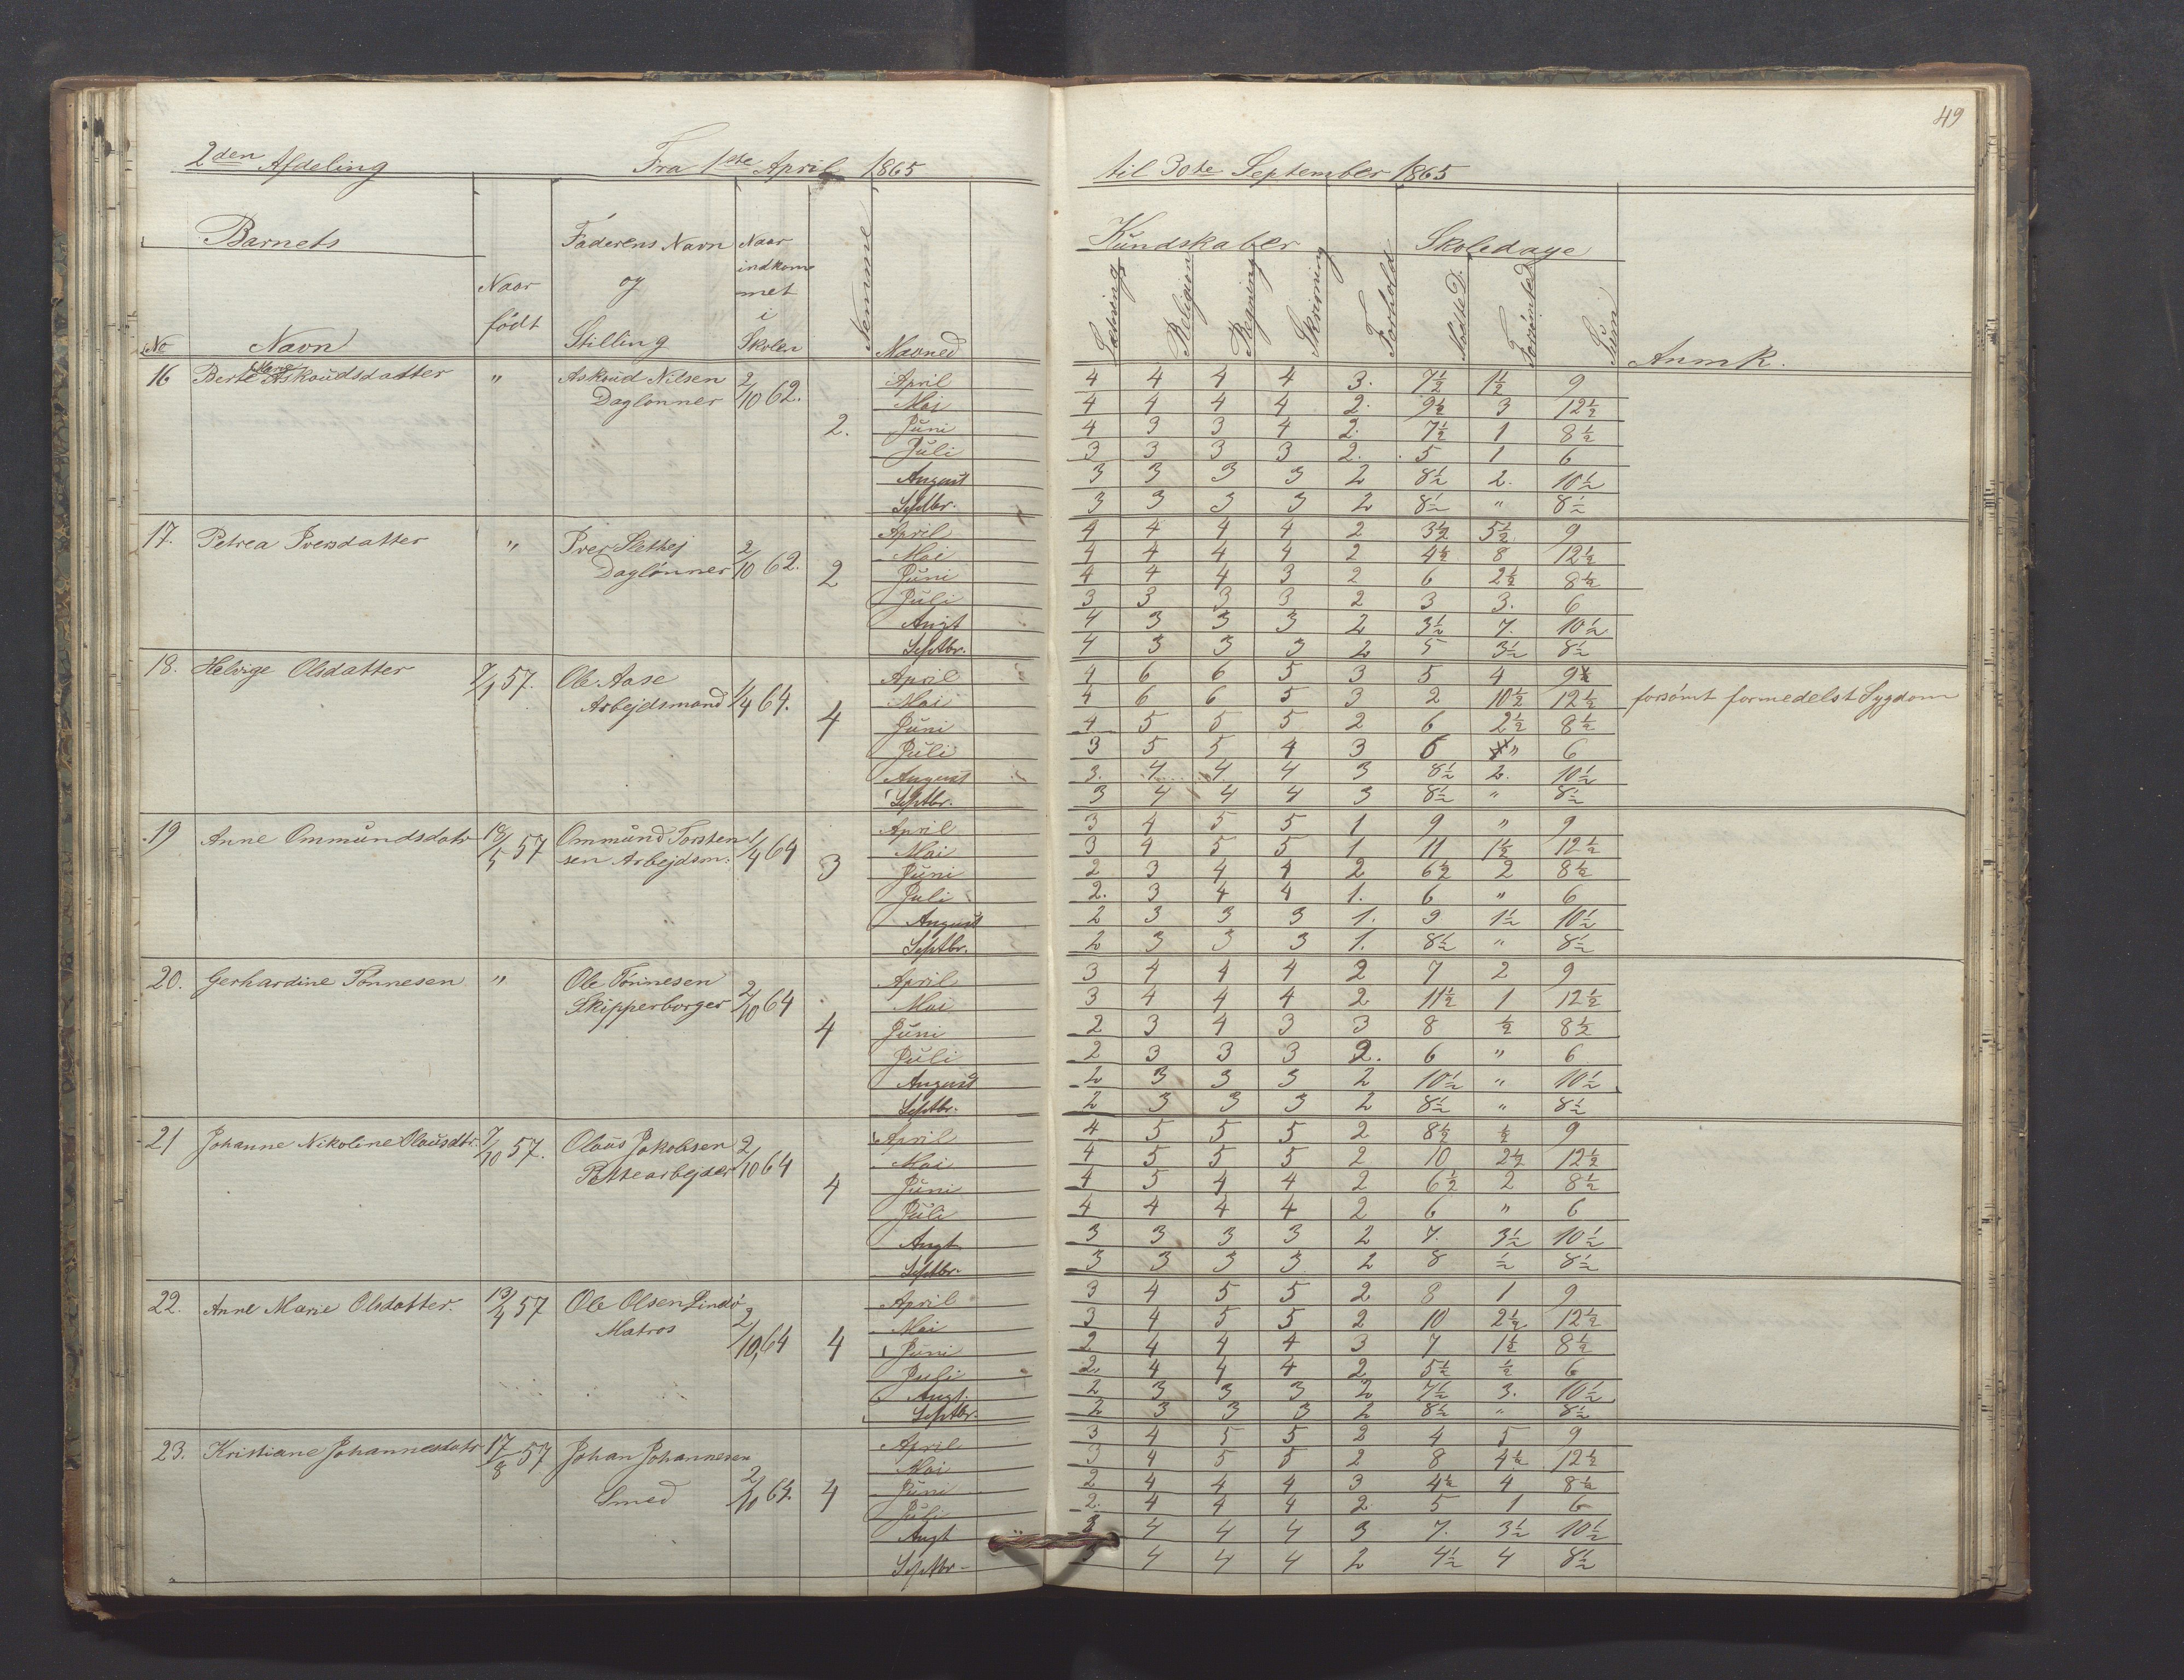 49
2den Afdeling Fra 1ste April 1865 til 30te September 1865
Barnets Faderens Navn Naar Nemme Kundskaber Skoledage
indkom
Naar og met
født i
No Navn Stilling Skolen Maaned Læsning Religion Regning Skrivning Forhold Mødte D. Forsømte D. Sum Anmk.
16 Berte Marie Askoudsdatter " Askoud Nilsen 2/10 62. April 4 4 4 4 3. 7½ 1½ 9
Daglønner Mai 4 4 4 4 2. 9½ 3 12½
2. Juni 4 3 3 4 2. 7½ 1 8½
Juli 3 3 3 3 2. 5 1 6
August 3 3 3 3 2 8½ 2. 10½
Septbr. 3 3 3 3 2 8½ " 8½
17. Petrea Iversdatter " Iver Slethej 2/10 62. April 4 4 4 4 2 3½ 5½ 9
Daglønner 2 Mai 4 4 4 4 2 4½ 8 12½
Juni 4 4 4 3 2 6 2½ 8½
Juli 3 3 3 3 2 3 3. 6
Augt 4 3 3 3 2 3½ 7. 10½
Septbr. 4 3 3 3 2 5 3½ 8½
18. Helvige Olsdatter 2/1 57. Ole Aase 1/4 64. April 4 6 6 5 3 5 4 9
Arbejdsmand 4 Mai 4 6 6 5 3 2 10½ 12½ forsømt formedelst Sygdom
Juni 4 5 5 5 2 6 2½ 8½
Juli 3 5 5 4 3 6 " 6
August 3. 4 4 4 3 8½ 2. 10½
Septbr. 3 4 4 4 3 8½ " 8½
19 Anne Ommundsdatr 18/5 57 Ommund Torsten 1/4 64 April 3 4 5 5 1 9 " 9
sen Arbejdsm. 3 Mai 3 4 5 5 1 11 1½ 12½
Juni 2 3 4 4 2 6½ 2 8½
Juli 2. 3 4 4 1. 6 " 6
August 2 3 3 3 1. 9 1½ 10½
Septbr. 2 3 3 3 1. 8½ " 8½
20. Gerhardine Tønnesen " Ole Tønnesen 2/10 64 April 3 4 4 4 2 7 2 9
Skipperborger Mai 3 4 4 4 2 11½ 1 12½
4 Juni 2 3 4 3 3 8 ½ 8½
Juli 2 3 3 3 2. 6 " 6
August 2 3 3 3 2 10½ " 10½
Septbr. 2 3 3 3 2 8½ " 8½
21 Johanne Nikoline Olausdtr. 7/10 57. Olaus Jakobsen 2/10 64 April 4 5 5 5 2 8½ ½ 9
Pottearbejder Mai 4 5 5 5 2 10 2½ 12½
4 Juni 4 5 4 4 2 6½ 2 8½
Juli 4 4 4 4 2 6 " 6
Augt 3 3 3 3 2 7. 3½ 10½
Septbr. 3 3 3 3 2 8 ½ 8½
22. Anne Marie Olsdatter. 13/4 57 Ole Olsen Lindø 2/10 64 April 3 4 5 5 2 8 1 9
Matros Mai 3 4 5 5 2 10 2½ 12½
4 Juni 2 4 4 4 3 7 1½ 8½
Juli 2. 4 4 4 2 5½ ½ 6
Augt. 2 3 3 3 2 7½ 3. 10½
Septbr. 2 3 3 3 2 8½ " 8½
23. Kristiane Johannesdatr 17/8 57 Johan Johannesen April 3 4 5 5 2 4 5 9
Mai 3 4 5 5 2 8 4½ 12½
Smed 2/10 64. 4 Juni 2 4 4 4 3 4½ 4 8½
Juli 2. 4 4 4 2. 5 1 6
Augt 3 4 4 4 3 7. 3½ 10½
Septbr. 3 4 4 4 2 4½ 4 8½